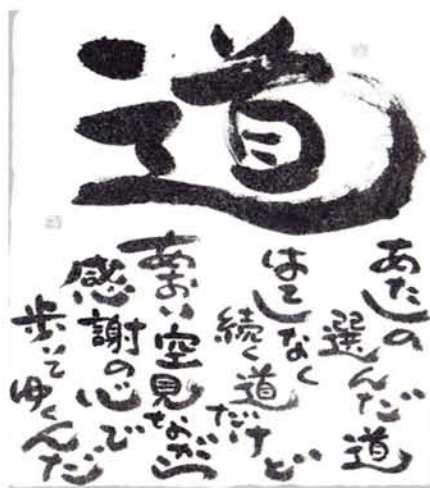 道
あたしの
選んだ道
はてしなく
続く道だけど
あおい空見ながら
感謝の心で
歩いてゆくんだ